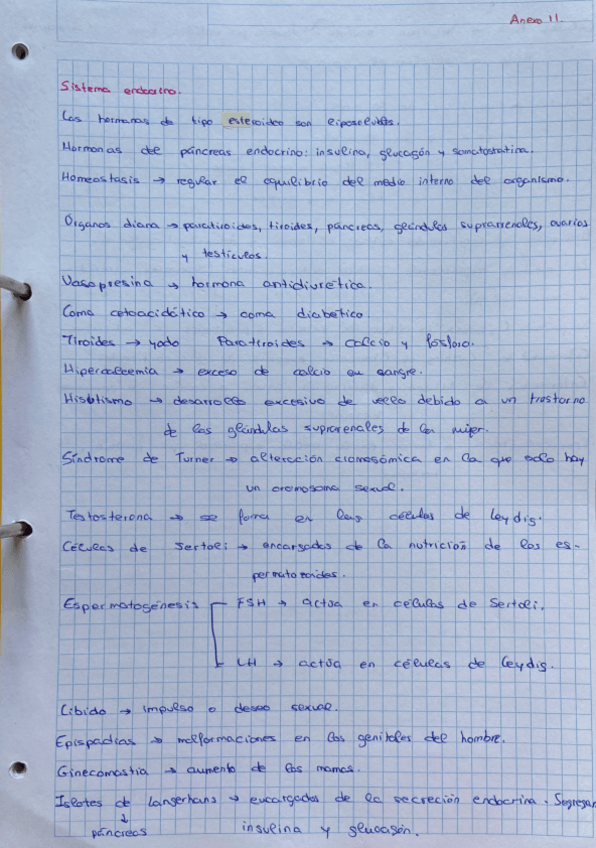 Anexo 11.
Sistema endocrino.
Las hormonas de tipo esteroideo son liposolubles.
Hormonas del páncreas endocrino: insulina, glucagón y somatostatina.
Homeostasis → regular el equilibrio del medio interno del organismo.
Órganos diana → paratiroides, tiroides, páncreas, glándulas suprarrenales, ovarios
y testículos.
Vasopresina → hormona antidiurética.
Coma cetoacidótico → coma diabético.
Tiroides → yodo Paratiroides → calcio y fósforo.
Hipercalcemia → exceso de calcio en sangre.
→ desarrollo excesivo de vello debido a un trastorno
de las glándulas suprarenales de la mujer.
Síndrome de Turner → alteración cromosómica en la que solo hay
un cromosoma sexual.
Testosterona → se forma en las células de Leydig.
Células de Sertoli → encargadas de la nutrición de los es-
permatozoides.
Espermatogénesis FSH → actúa en células de Sertoli.
LH → actúa en células de Leydig.
Libido → impulso o deseo sexual.
Epispadias → malformaciones en los genitales del hombre.
Ginecomastia → aumento de las mamas.
Islotes de Langerhans → encargados de la secreción endocrina. Segregan
↓
páncreas insulina y glucagón.